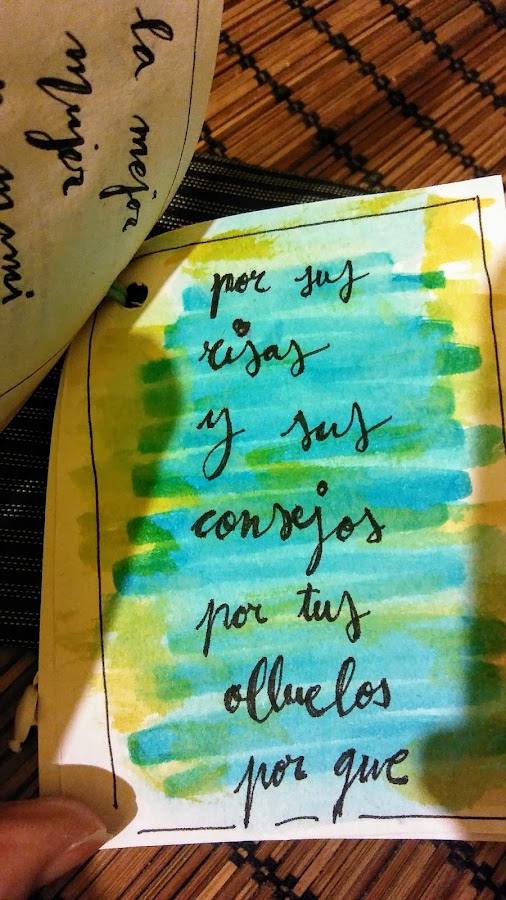 la mejor
mujer
mami
por sus
risas
y sus
consejos
por tus
olluelos
por que